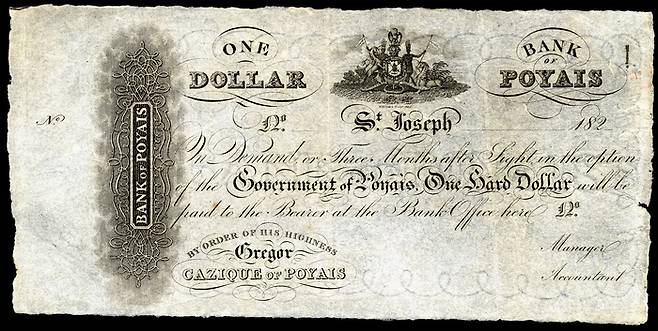 ONE
DOLLAR
BANK
OF
POYAIS
BANK OF POYAIS
No.
No.
St. Joseph
182
On Demand or Three Months after Sight in the option
of the Government of Poyais, One Hard Dollar will be
paid to the Bearer at the Bank Office here No.
BY ORDER OF HIS HIGHNESS
Gregor
CAZIQUE OF POYAIS
Manager
Accountant